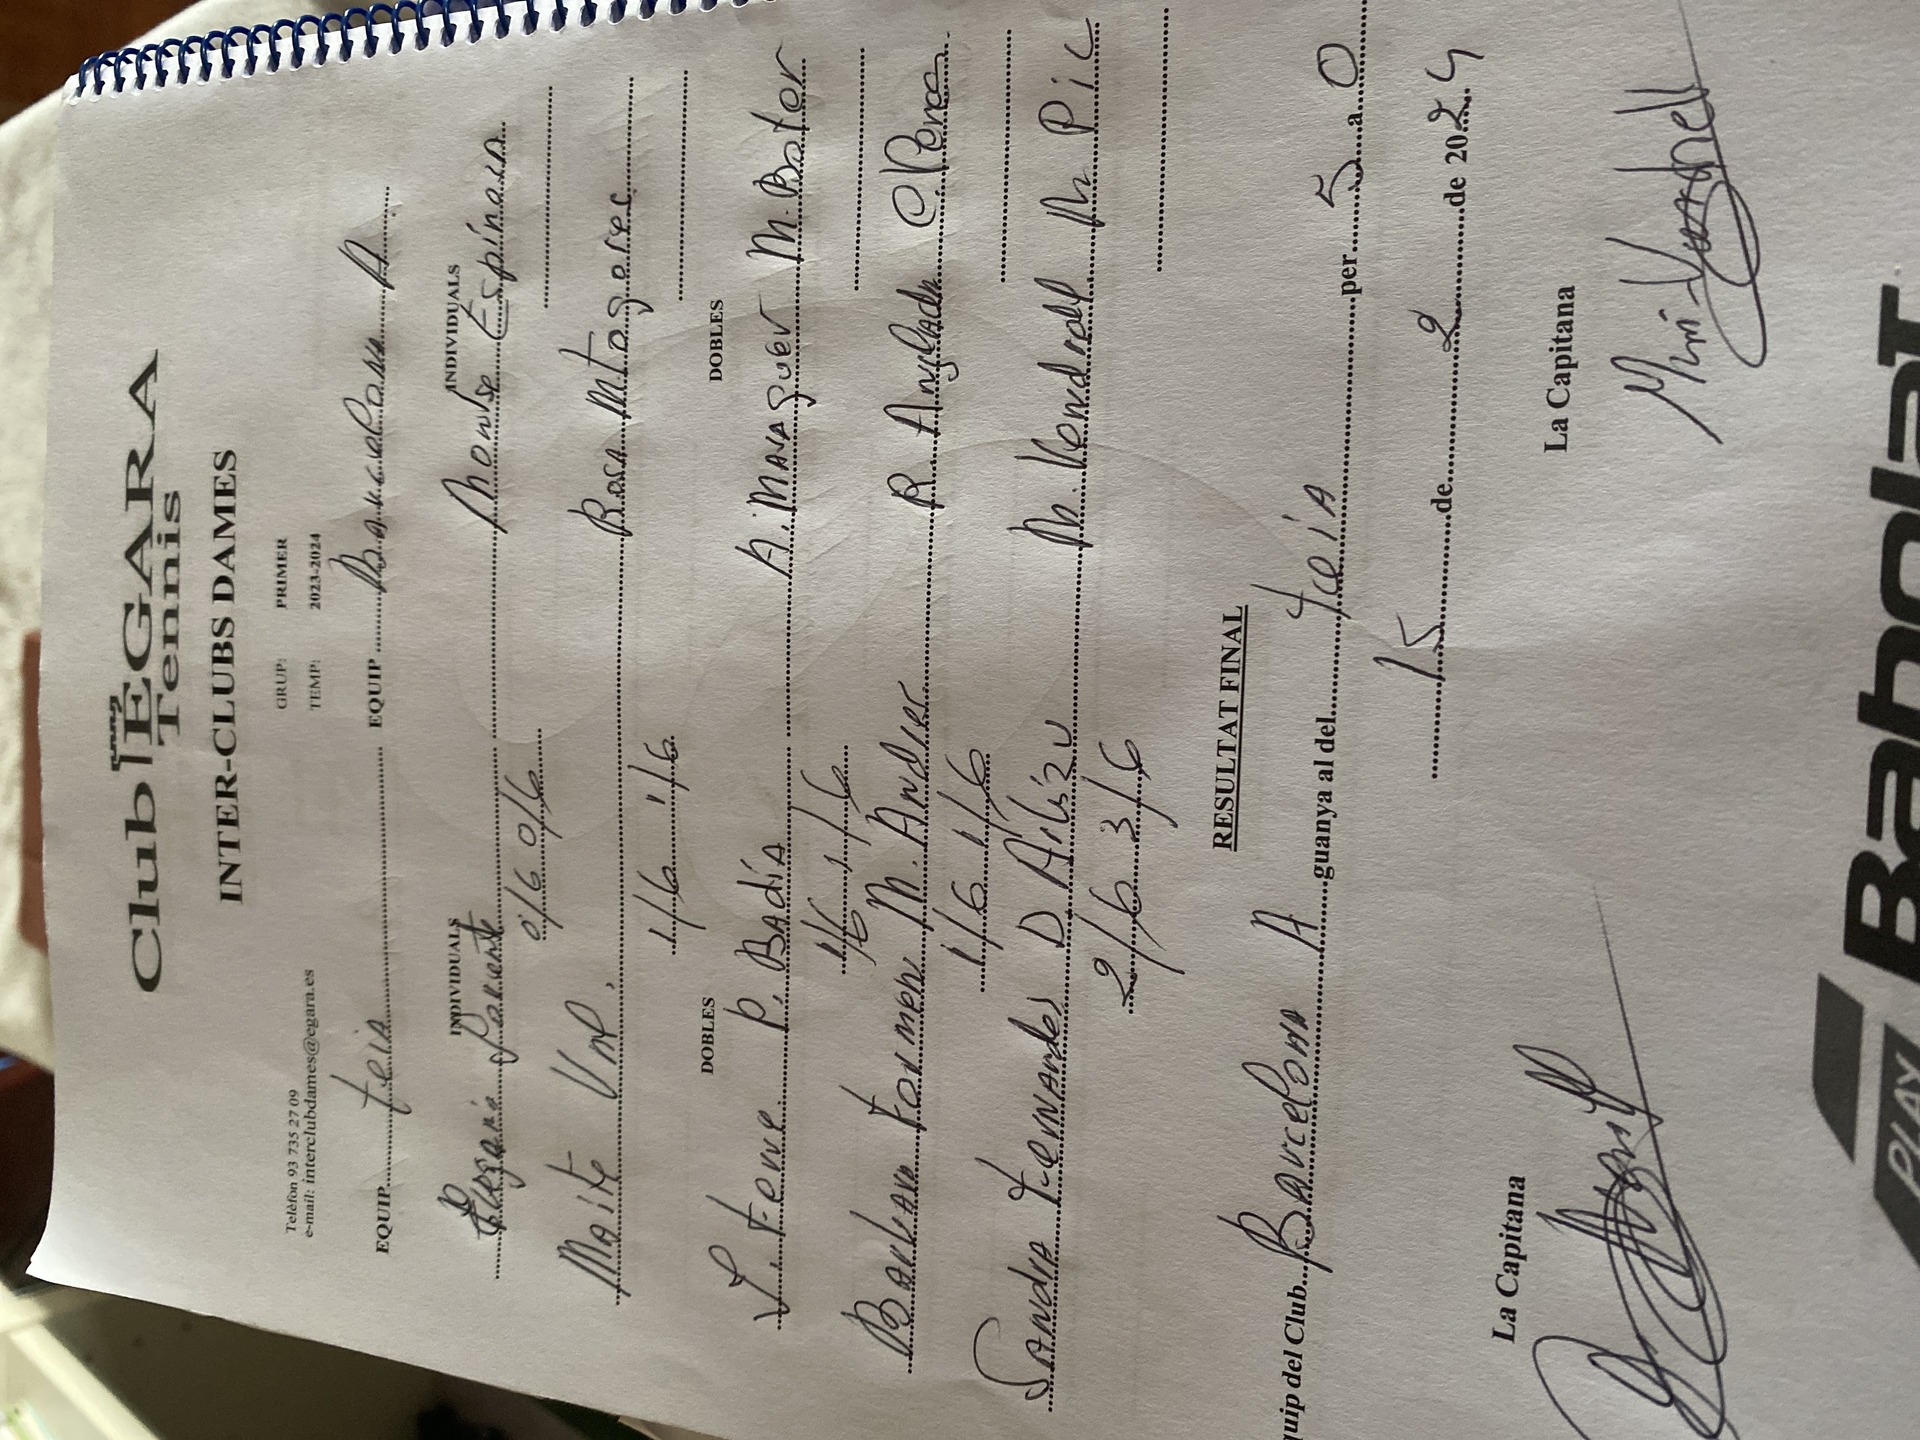 Club EGARA
Tennis
INTER-CLUBS DAMES
GRUP: PRIMER
TEMP: 2023-2024
Telèfon 93 735 27 09
e-mail: interclubdames@egara.es
EQUIP teià EQUIP Barcelona A
INDIVIDUALS INDIVIDUALS
Montse Espinosa
0/6 0/6
Maite Rosa
1/6 1/6
DOBLES DOBLES
P. Badía M. Bater
1/6 1/6
Barbara M. Andier R Anglada C. Pera
1/6 1/6
Sandra Fernandes D M. Vendrell M Pic
2/6 3/6
RESULTAT FINAL
quip del Club Barcelona A guanya al del teià per 5 a 0
15 de 2 de 2024
La Capitana La Capitana
PLAY Babolat